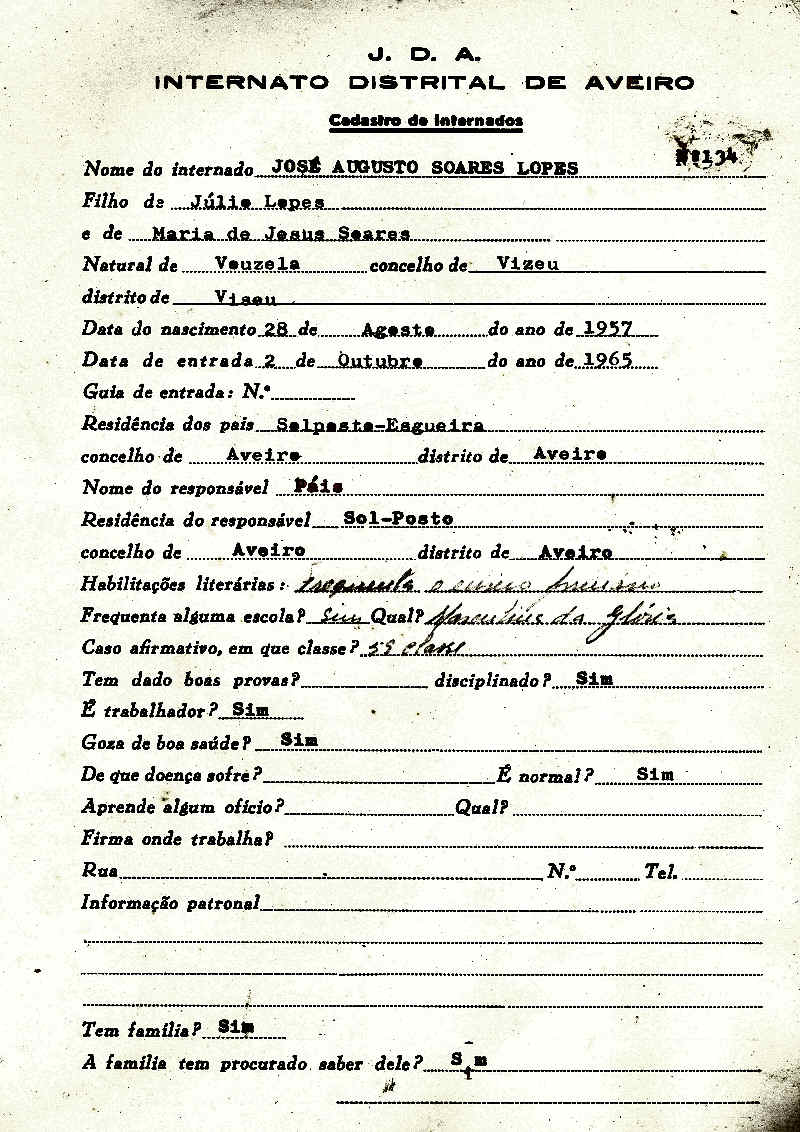 J. D. A.
INTERNATO DISTRITAL DE AVEIRO
Cadastro de Internados
Nº134
Nome do internado JOSÉ AUGUSTO SOARES LOPES
Filho de Júlio Lopes
e de Maria de Jesus Soares
Natural de Vouzela concelho de Vizeu
distrito de Viseu
Data do nascimento 28 de Agosto do ano de 1957
Data de entrada 2 de Outubro do ano de 1965
Guia de entrada: N.º
Residência dos pais Solposto-Esgueira
concelho de Aveiro distrito de Aveiro
Nome do responsável Páis
Residência do responsável Sol-Posto
concelho de Aveiro distrito de Aveiro
Habilitações literárias: frequenta o ensino
Frequenta alguma escola? Sim Qual? Masculina da Glória
Caso afirmativo, em que classe? classe
Tem dado boas provas? disciplinado? Sim
É trabalhador? Sim
Goza de boa saúde? Sim
De que doença sofre? É normal? Sim
Aprende algum ofício? Qual?
Firma onde trabalha?
Rua N.º Tel.
Informação patronal
Tem família? Sim
A família tem procurado saber dele? Sim